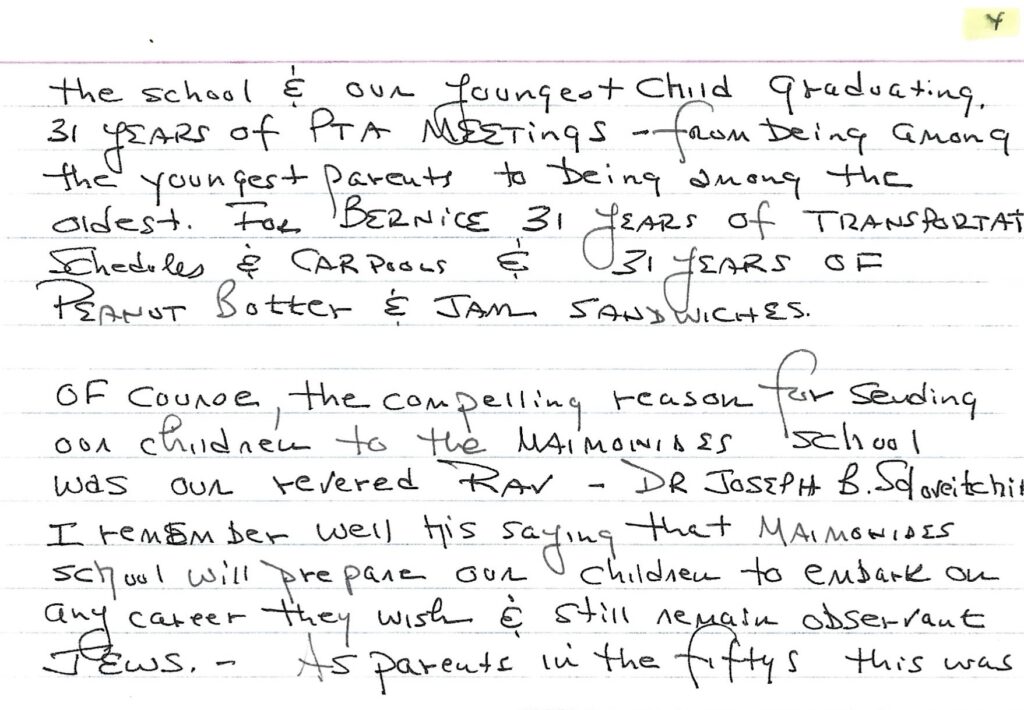 4
the school & our youngest child graduating.
31 YEARS of PTA MEETINGS - from being among
the youngest parents to being among the
oldest. For BERNICE 31 YEARS of TRANSPORTAT
Schedules & CARPOOLS & 31 YEARS OF
PEANUT Butter & JAM SANDWICHES.
OF Course, the compelling reason for sending
our children to the MAIMONIDES School
was our revered RAV - DR JOSEPH B. Soloveitchi
I remember well his saying that MAIMONIDES
school will prepare our children to embark on
any career they wish & still remain observant
JEWS. - AS parents in the fiftys this was